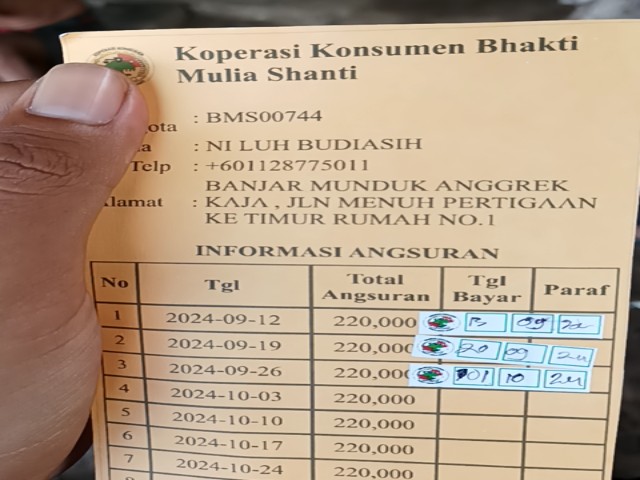 Koperasi Konsumen Bhakti
Mulia Shanti
ota : BMS00744
a : NI LUH BUDIASIH
Telp : +601128775011
lamat : BANJAR MUNDUK ANGGREK
KAJA , JLN MENUH PERTIGAAN
KE TIMUR RUMAH NO.1
INFORMASI ANGSURAN
No Tgl Total Angsuran Tgl Bayar Paraf
1 2024-09-12 220,000 09 24
2 2024-09-19 220,000 20 09 24
3 2024-09-26 220,000 01 10 24
4 2024-10-03 220,000
5 2024-10-10 220,000
6 2024-10-17 220,000
7 2024-10-24 220,000